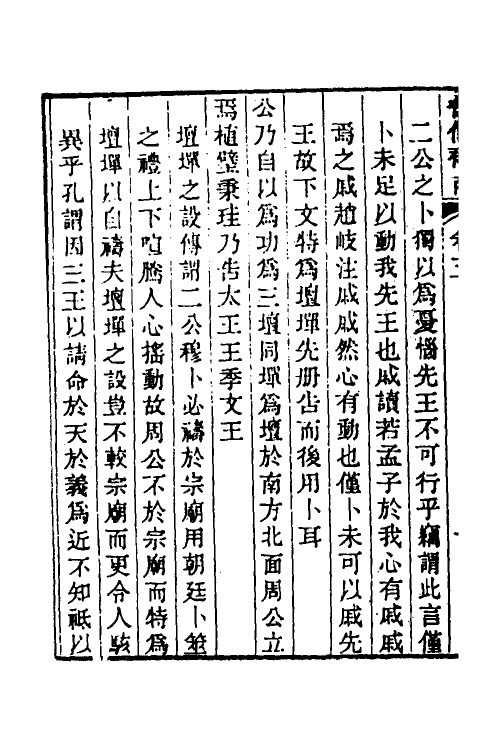 二公之卜獨以爲憂惱先王不可行乎竊謂此言僅
卜未足以動我先王也戚讀若孟子於我心有戚戚
焉之戚趙岐注戚戚然心有動也僅卜未可以戚先
王故下文特爲壇墠先册告而後用卜耳
公乃自以爲功爲三壇同墠爲壇於南方北面周公立
焉植璧秉珪乃告太王王季文王
壇墠之設傳謂二公穆卜必禱於宗廟用朝廷卜筮
之禮上下喧騰人心搖動故周公不於宗廟而特爲
壇墠以自禱夫壇墠之設豈不較宗廟而更令人駭
異乎孔謂因三王以請命於天於義爲近不知祇以